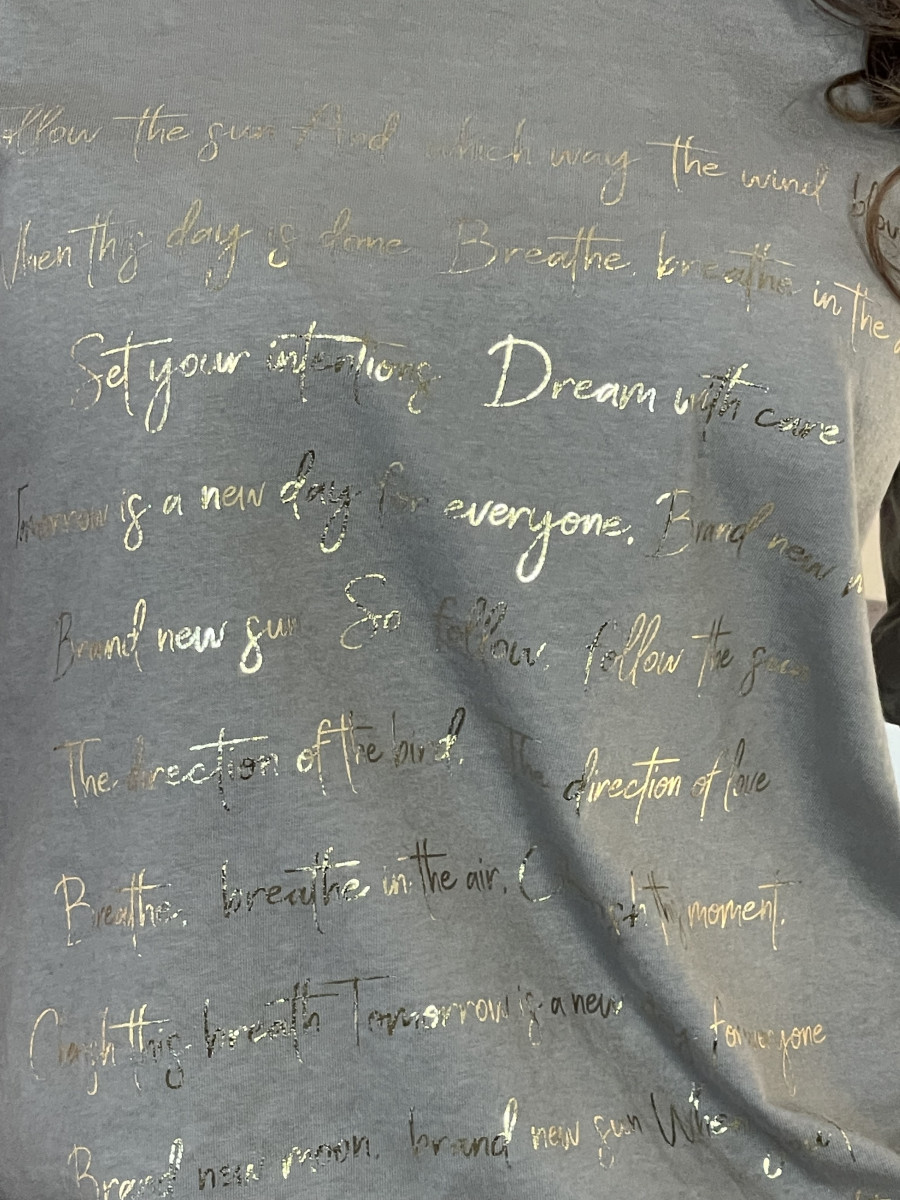 ollow the sun And which way the wind blow
When this day is done Breathe. breathe in the
Set your intentions Dream with care
Tomorrow is a new day for everyone. Brand new
Brand new sun So follow. follow the sun
The direction of the bird. The direction of love
Breathe. breathe in the air. moment.
this breath Tomorrow is a new
Brand new moon. brand new sun When